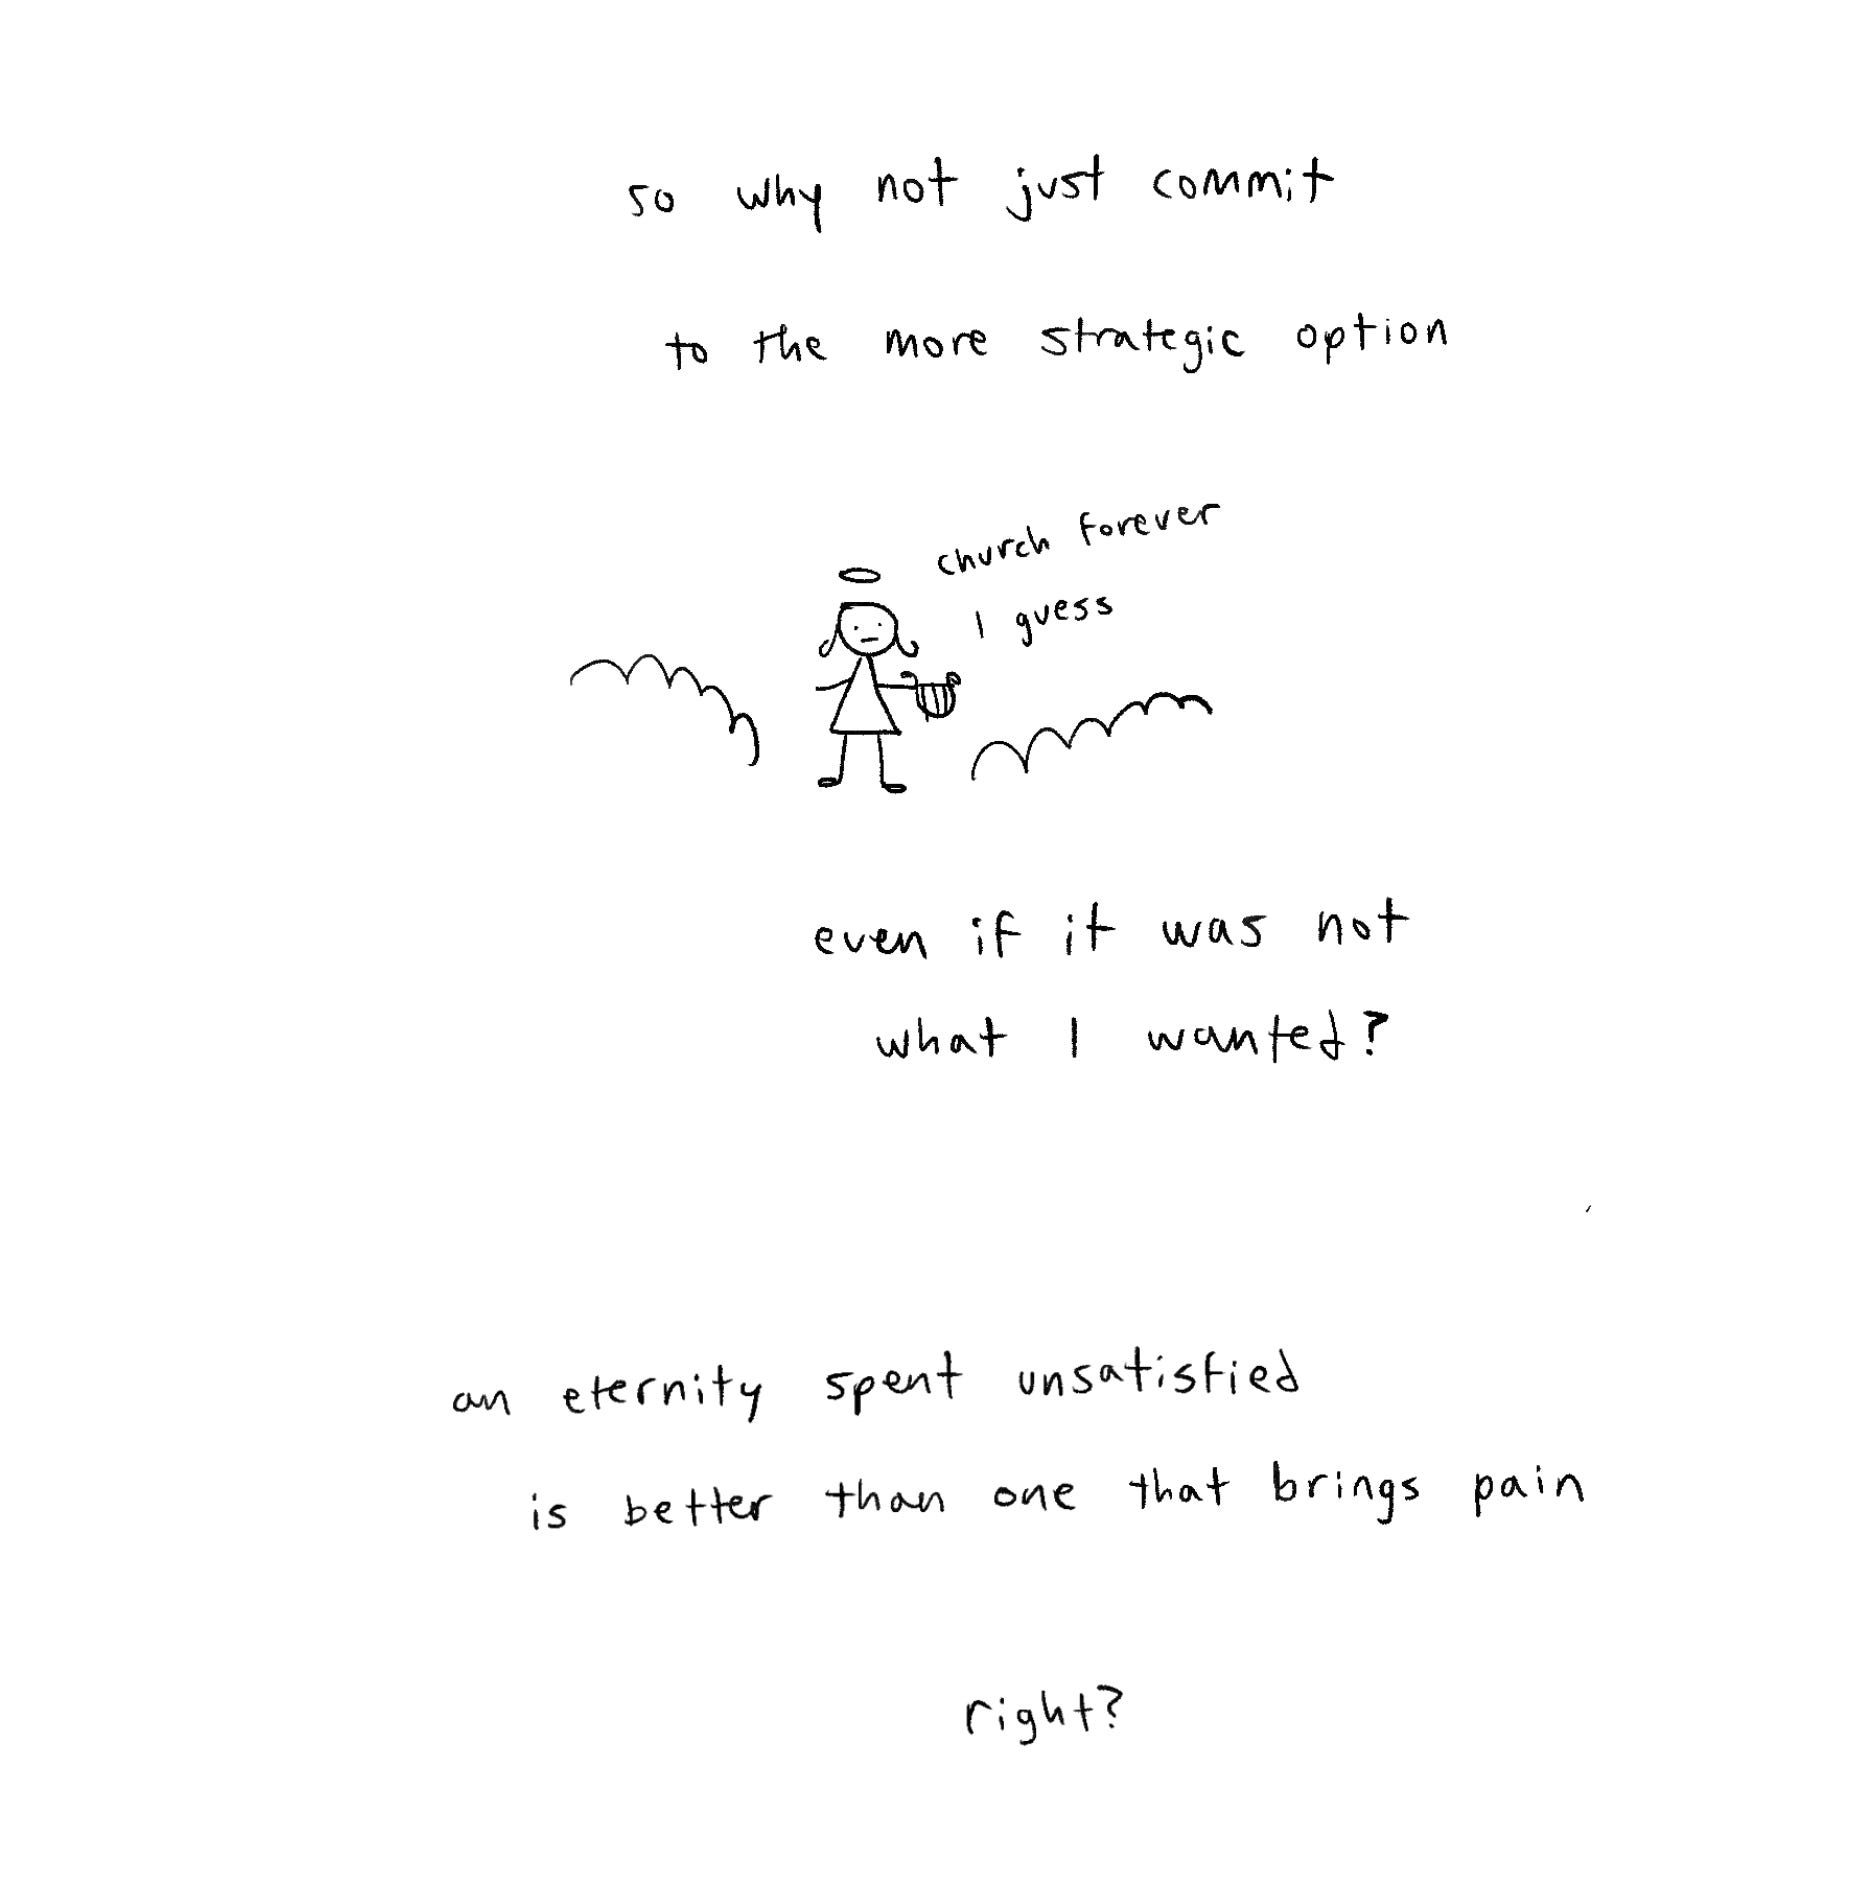 so why not just commit
to the more strategic option
church forever
I guess
even if it was not
what I wanted?
an eternity spent unsatisfied
is better than one that brings pain
right?